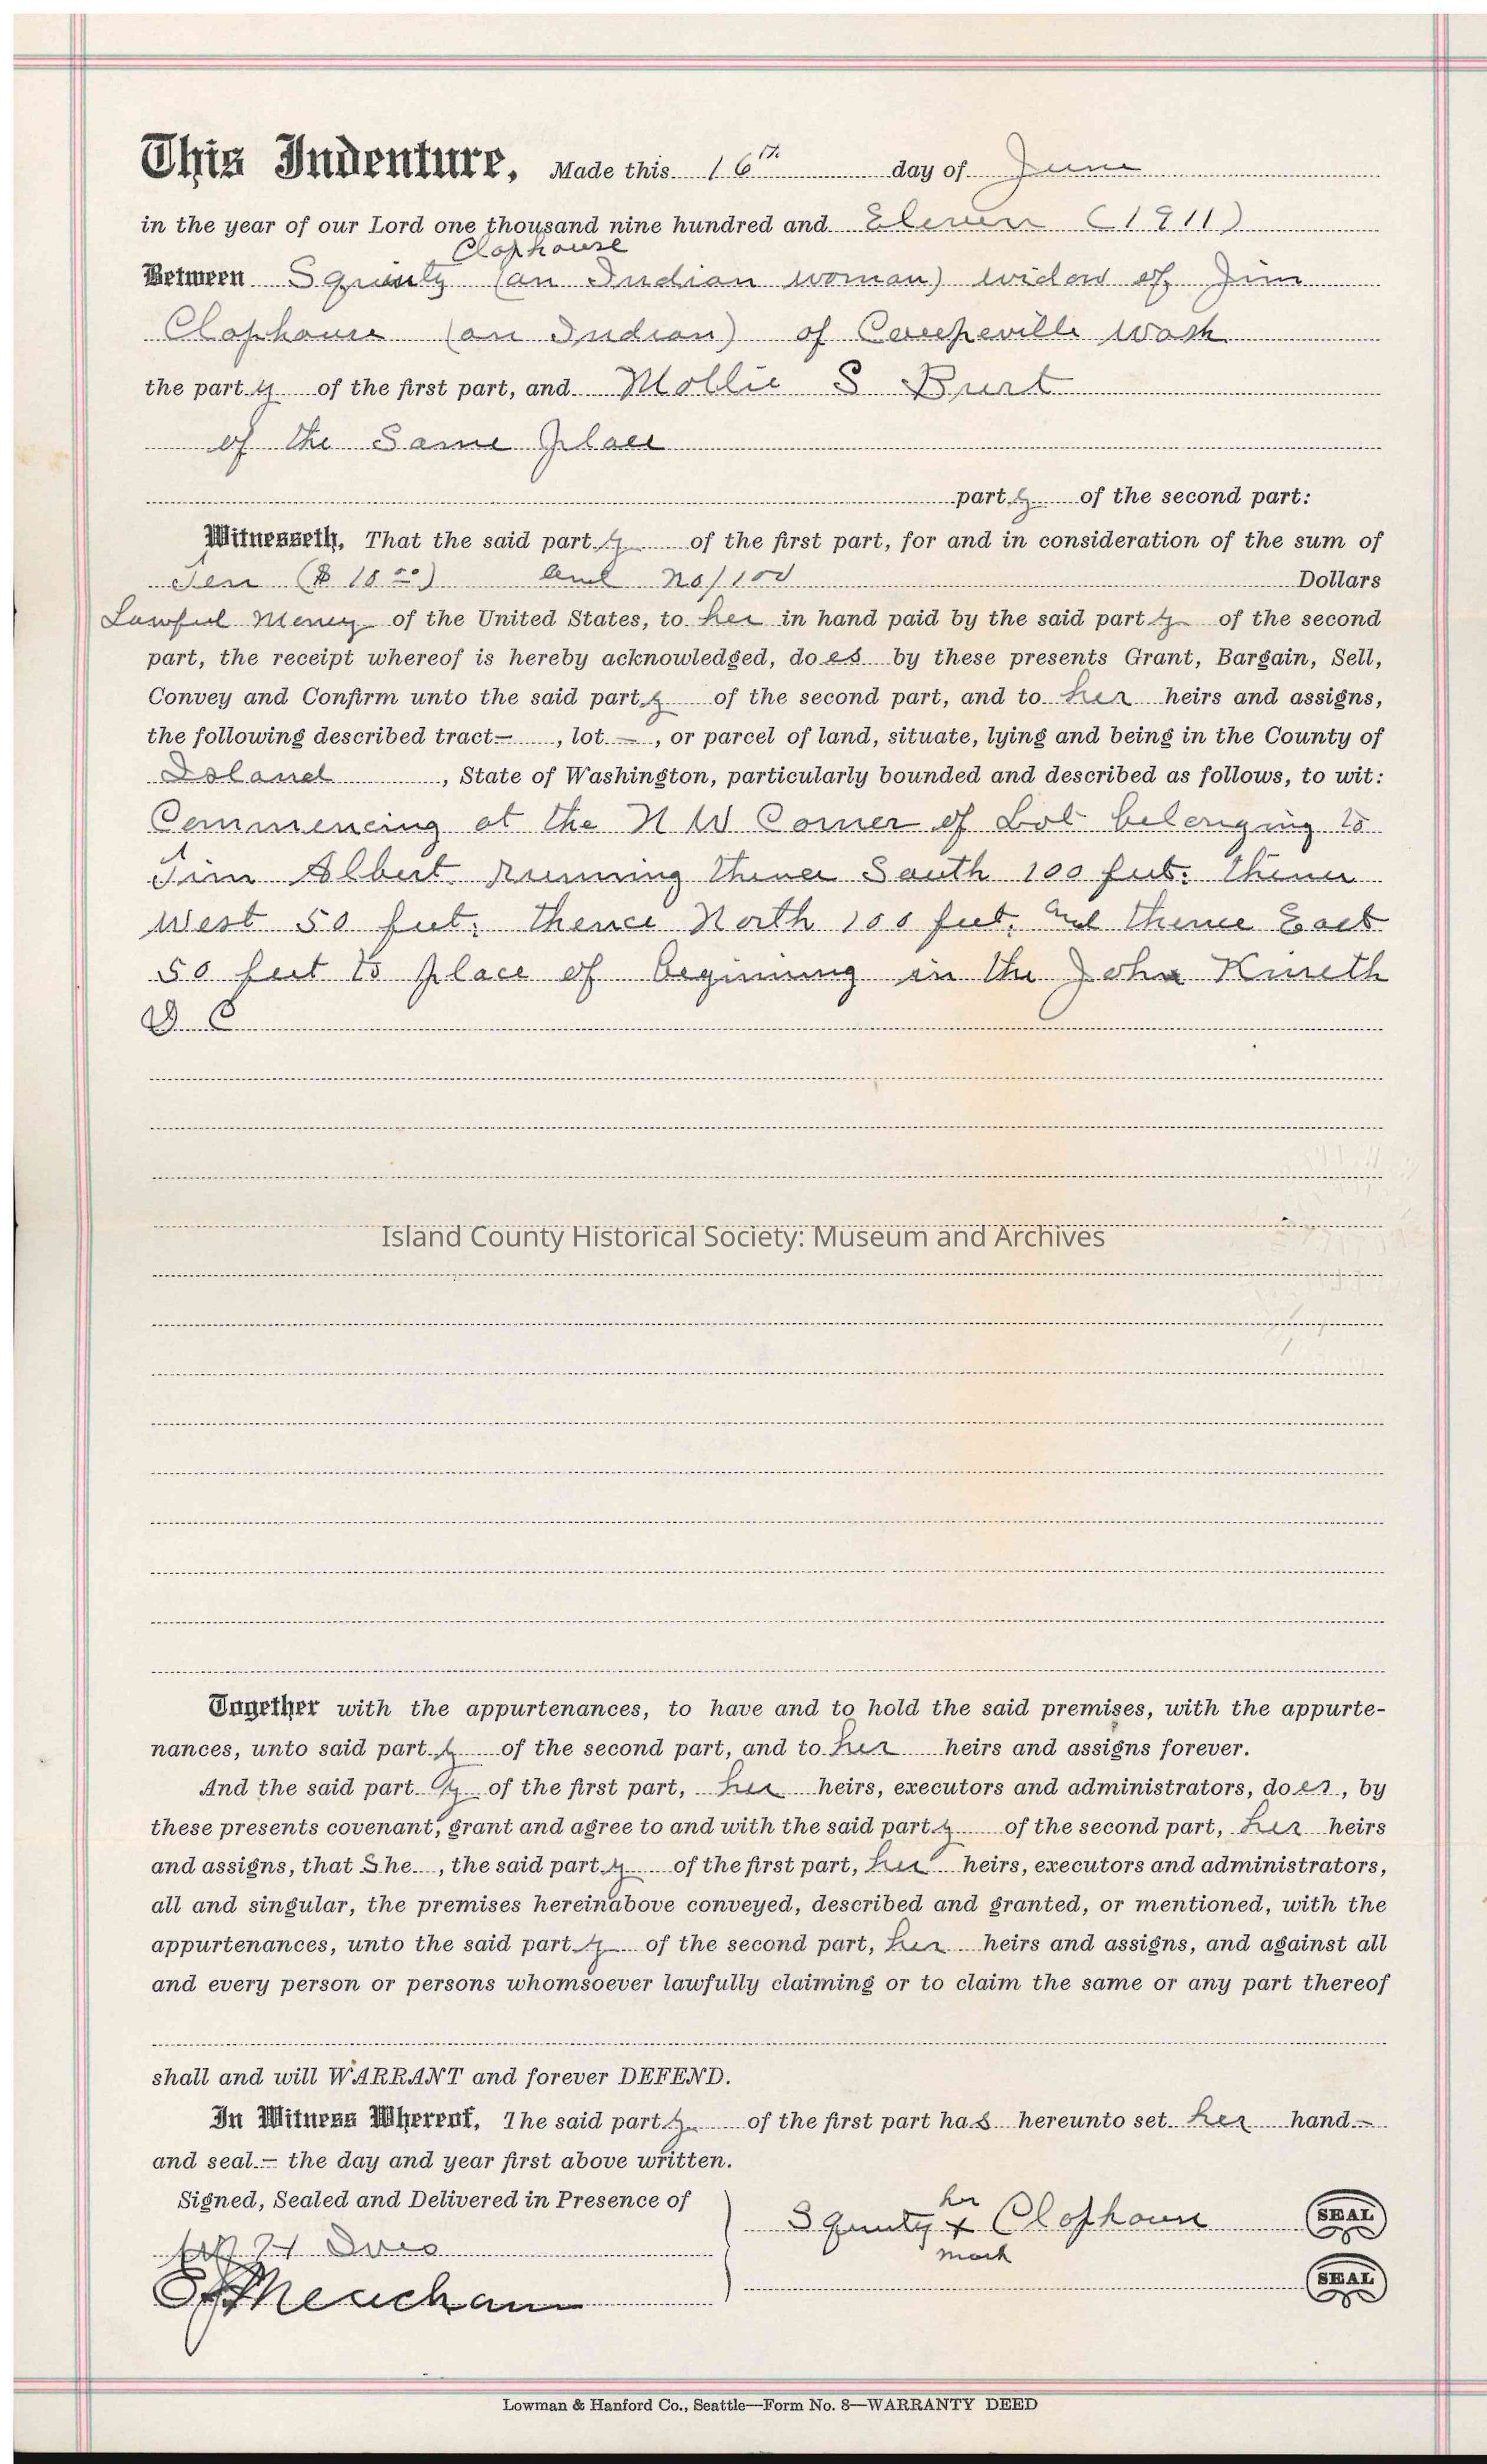 This Indenture, Made this 16th day of June
in the year of our Lord one thousand nine hundred and Eleven (1911)
Clophouse
Between Squinty (an Indian woman) widow of Jim
Clophouse (an Indian) of Coupeville Wash
the party of the first part, and Mollie S Burt
of the Same place
party of the second part:
Witnesseth, That the said party of the first part, for and in consideration of the sum of
Ten ($10.00) and no/100 Dollars
Lawful Money of the United States, to her in hand paid by the said party of the second
part, the receipt whereof is hereby acknowledged, does by these presents Grant, Bargain, Sell,
Convey and Confirm unto the said party of the second part, and to her heirs and assigns,
the following described tract—, lot —, or parcel of land, situate, lying and being in the County of
Island, State of Washington, particularly bounded and described as follows, to wit:
Commencing at the N W Corner of Lot belonging to
Jim Albert running thence South 100 feet. thence
West 50 feet, thence North 100 feet, and thence East
50 feet to place of beginning in the John Kineth
D C
Island County Historical Society: Museum and Archives
Together with the appurtenances, to have and to hold the said premises, with the appurte-
nances, unto said party of the second part, and to her heirs and assigns forever.
And the said party of the first part, her heirs, executors and administrators, does, by
these presents covenant, grant and agree to and with the said party of the second part, her heirs
and assigns, that She, the said party of the first part, her heirs, executors and administrators,
all and singular, the premises hereinabove conveyed, described and granted, or mentioned, with the
appurtenances, unto the said party of the second part, her heirs and assigns, and against all
and every person or persons whomsoever lawfully claiming or to claim the same or any part thereof
shall and will WARRANT and forever DEFEND.
In Witness Whereof, The said party of the first part has hereunto set her hand—
and seal — the day and year first above written.
Signed, Sealed and Delivered in Presence of
her
Squinty x Clophouse SEAL
mark
Ives
SEAL
Lowman & Hanford Co., Seattle—Form No. 8—WARRANTY DEED